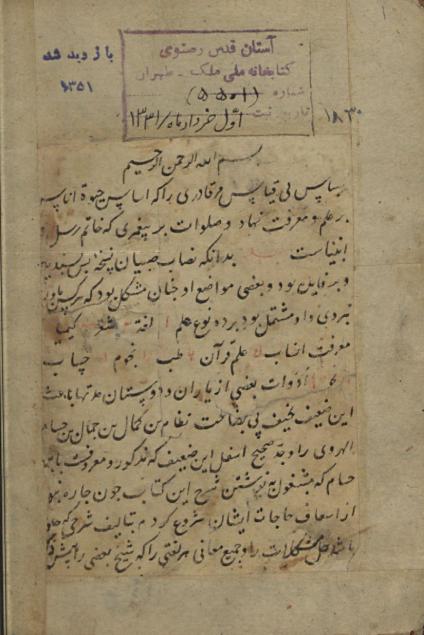 آستان قدس رضوی
کتابخانه ملی ملک - طهران
شماره (۵۵۰۱)
تاریخ ثبت اول خرداد ماه ۱۳۳۱
باز دید شد
۱۳۵۱
۱۸۳۰
بسم الله الرحمن الرحیم
سپاس بی قیاس مر قادری را که اساس حیوة اناس
بر علم و معرفت نهاد و صلوات بر پیغمبری که خاتم رسل و
انبیاست بدانکه نصاب صبیان نسخۀ بس پسندیده
و پر فایده بود و بعضی مواضع او چنان مشکل بود که هر کس
نبردی و او مشتمل بود بر ده نوع علم لغة شعر کیمیا
معرفت انساب علم قرآن طب نجوم حساب
ادوات بعضی از یاران و دوستان
این ضعیف نحیف بی بضاعت نظام بن کمال بن جمال بن حسام
الهروی را و جد صحیح اسفل این ضعیف که مذکور و معروفست
حسام که مشغول به نوشتن شرح این کتاب چون چاره نبود
از اسعاف حاجات ایشان شروع کردم بتالیف شرحی که
باشد حل مشکلات را و جمیع معانی هر لغتی را که شیخ بعضی را